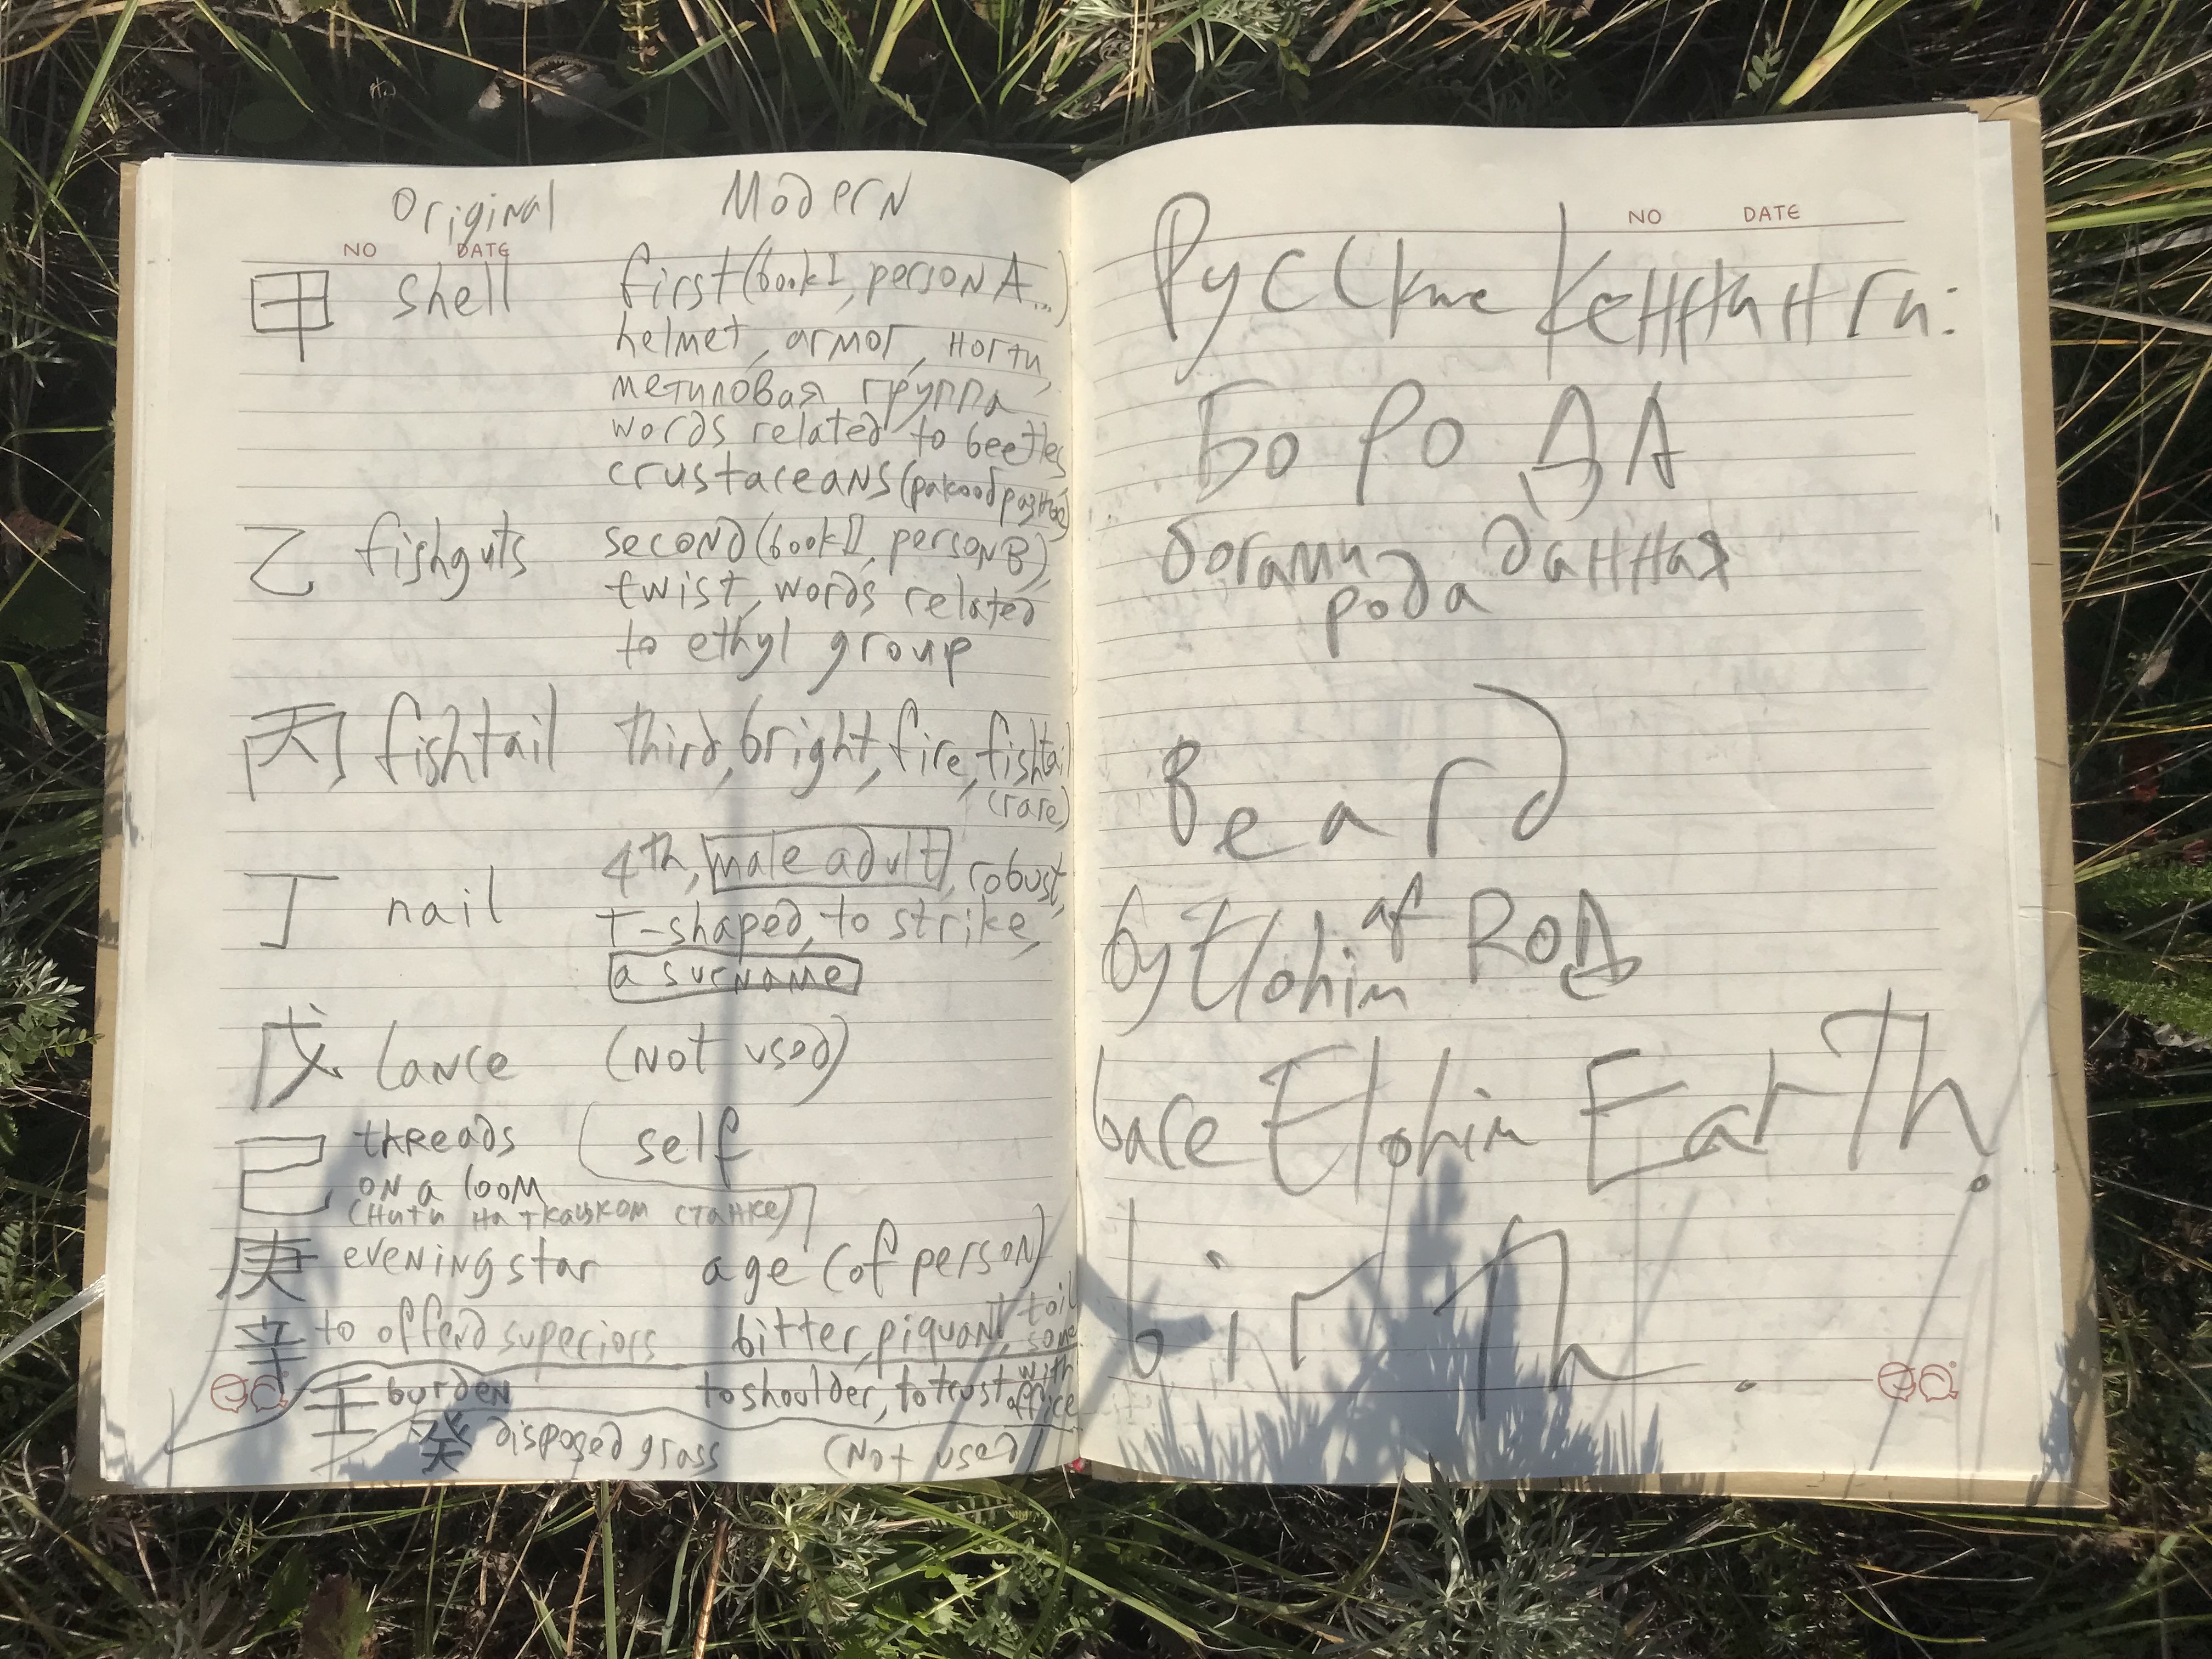 Original Modern
NO DATE
甲 shell first (book I, person A...)
helmet, armor, ногти
метиловая группа,
words related to beetles
crustaceans (ракообразные)
乙 fishguts second (book II, person B)
twist, words related
to ethyl group
丙 fishtail third, bright, fire, fishtail
(rare)
丁 nail 4th, male adult, robust,
t-shaped, to strike,
a surname
戊 lance (not used)
己 threads self
on a loom
(нити на ткацком станке)
庚 evening star age (of person)
辛 to offend superiors bitter, piquant, toil
壬 burden to shoulder, to trust with office
癸 disposed grass (not used)
NO DATE
Русские кеннинги:
БОРОДА
богами данная
рода
Beard
by Elohim of Rod
gace Elohim Earth.